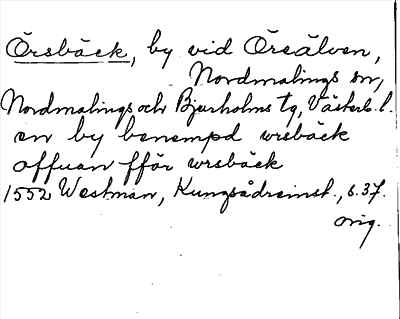 Örsbäck, by vid Öreälven,
Nordmalings sn,
Nordmalings och Bjurholms tg, Västerb. l.
en by benempd wrsbäck
offuan fför wrsbäck
1552 Westman, Kungsådreinst., s. 37.
orig.